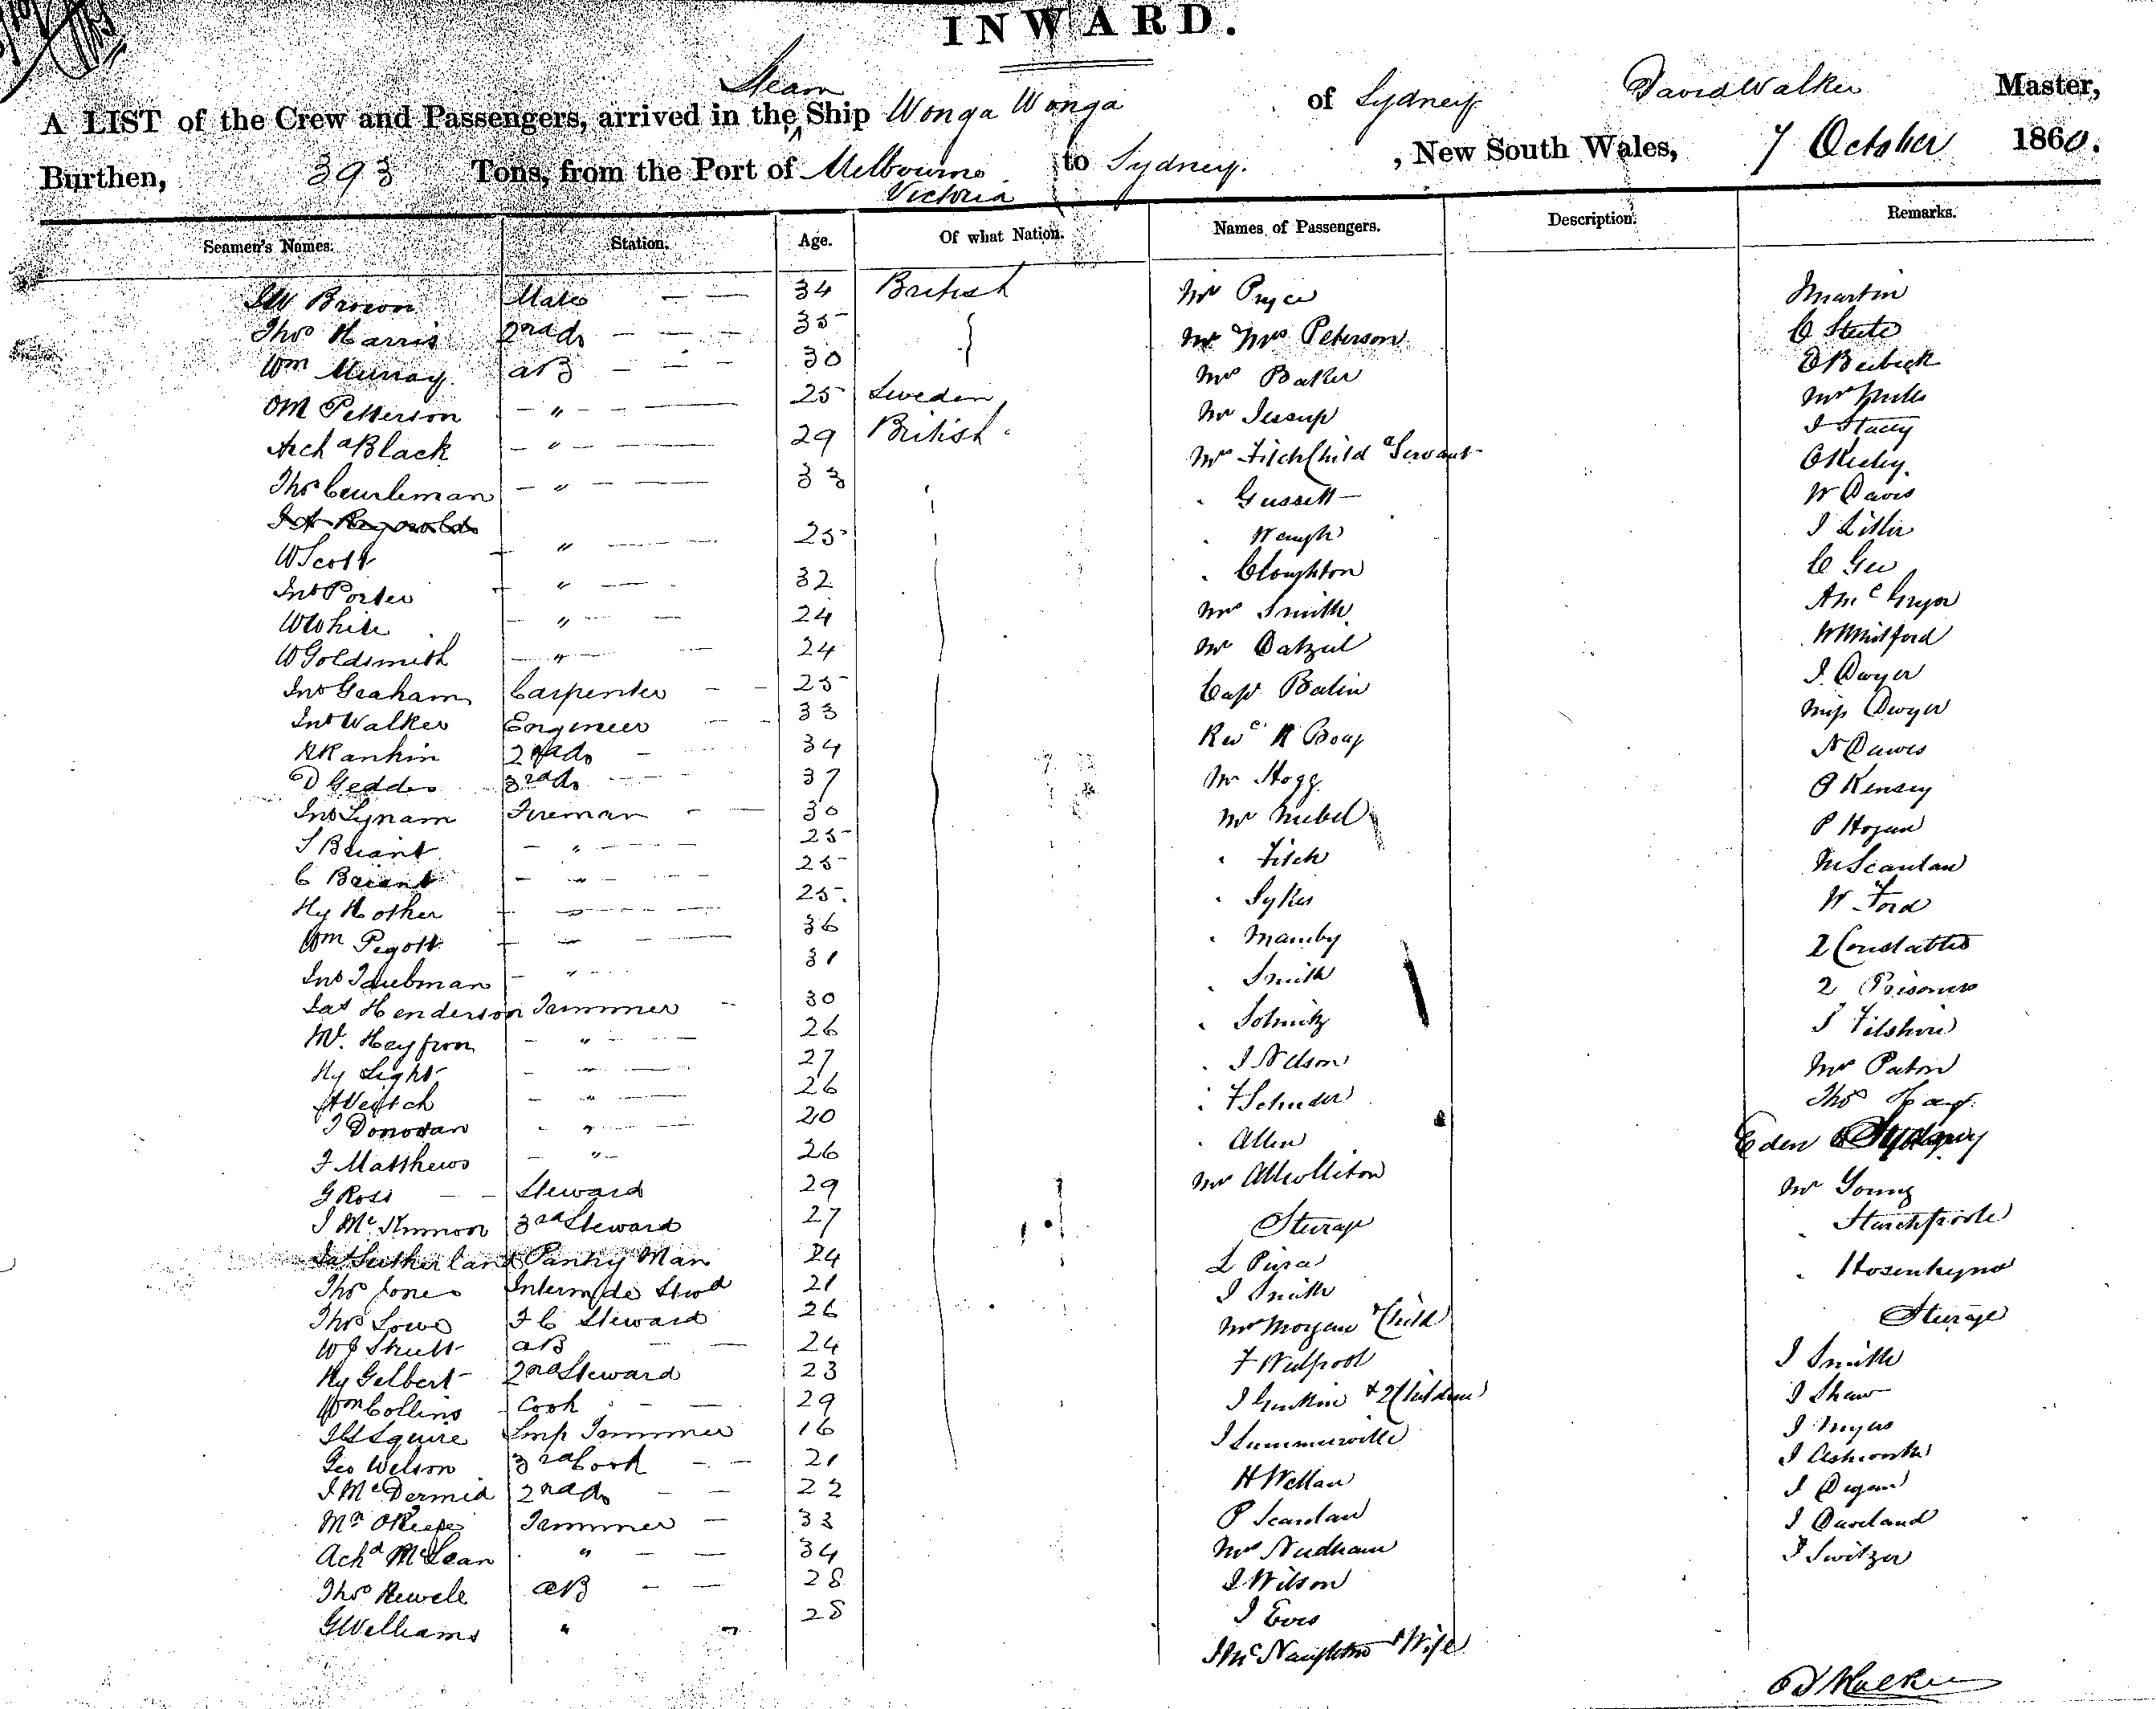 INWARD.
A LIST of the Crew and Passengers, arrived in the Steam Ship Wonga Wonga of Sydney David Walker Master,
Burthen, 393 Tons, from the Port of Melbourne Victoria to Sydney. , New South Wales, 7 October 1860.
Seamen's Names. Station. Age. Of what Nation. Names of Passengers. Description. Remarks.
JW Brown Mate 34 British Mr Pryce Martin
Thos Harris 2nd do 35 Mr Mrs Peterson C Steele
Wm Murray AB 30 Mrs Baker
OM Petterson " 25 Sweden Mr Jessup
Archd Black " 29 British Mrs Fitch Child & Servant J Stacey
Thos " 33 " Gussett
J A Reynolds W Davis
W Scott " 25 " Waugh J
Jno Porter " 32 " Cloughton C Gee
W White " 24 Mrs Smith A McGregor
W Goldsmith " 24 Mr Dalziel W Mitford
Jno Graham Carpenter 25 Capt J Dwyer
Jno Walker Engineer 33 Revd R Miss Dwyer
R Rankin 2nd do 34 N Dawes
D Geddes 3rd do 37 Mr Hogg P Kensey
Jno Lynam Fireman 30 Mr P Hogan
S Briant " 25 " Fitch M Scanlan
C Briant " 25 " Sykes W Ford
Hy Hother " 25 " Mamby 2 Constables
Wm Pegott " 36 " Smith 2 Prisoners
Jno Taubman " 31
Jas Henderson Trimmer 30 " J Filshire
W. Heyfron " 26 " J Nelson Mr Paton
Hy Light " 27 " F Schuder Thos Hay
A Veitch " 26
J Donovan " 20 " Allen Eden
F Matthews " 26 Mr
G Ross Steward 29 Steerage Mr Young
J McKinnon 3rd Steward 27
Jas Sutherland Pantry Man 24 L
Thos Jones Intermde Stwd 21 J Smith
Thos Lowe F C Steward 26 Mrs Morgan & Child Steerage
W J Shutt AB 24 F Walpool J Smith
Hy Gelbert 2nd Steward 23 J & 2 Children J Shaw
Wm Collins Cook 29 J Myers
J Squire Lmp Trimmer 16 J Summerville J Ashworth
Geo Welson 3rd Cook 21 H Wellan J Degan
J McDermid 2nd do 22 P Scanlan J
Ml OKeefe Trimmer 33 Mrs Needham J Switzer
Achd McLean " 34 J Wilson
Thos Rewell AB 28 J
G Welliams " 28 J McNaughton & Wife
D Walker